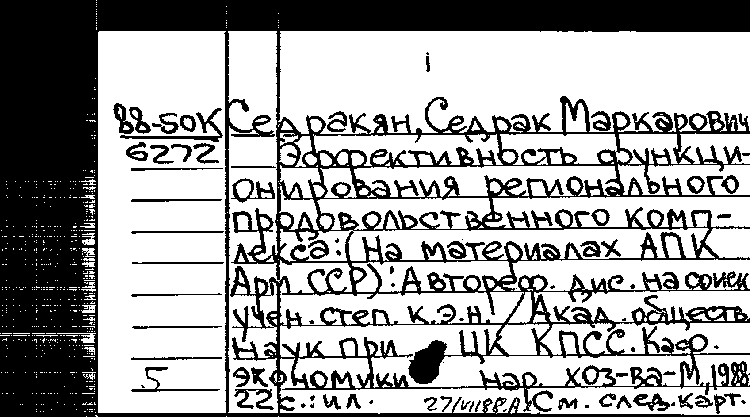 i
88-50К Седракян, Седрак Маркарович
6272 Эффективность функци-
онирования регионального
продовольственного комп-
лекса: (На материалах АПК
Арм. ССР): Автореф. дис. на соиск
учен. степ. к.э.н. / Акад. обществ.
наук при ЦК КПСС. Каф.
5 экономики нар. хоз-ва - М., 1988
22 с.: ил. См. след. карт.